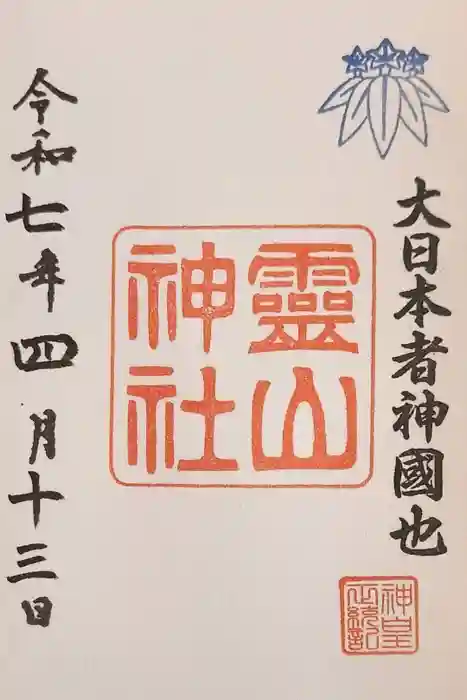 大日本者神國也
靈山
神社
神皇
正統記
令和七年四月十三日